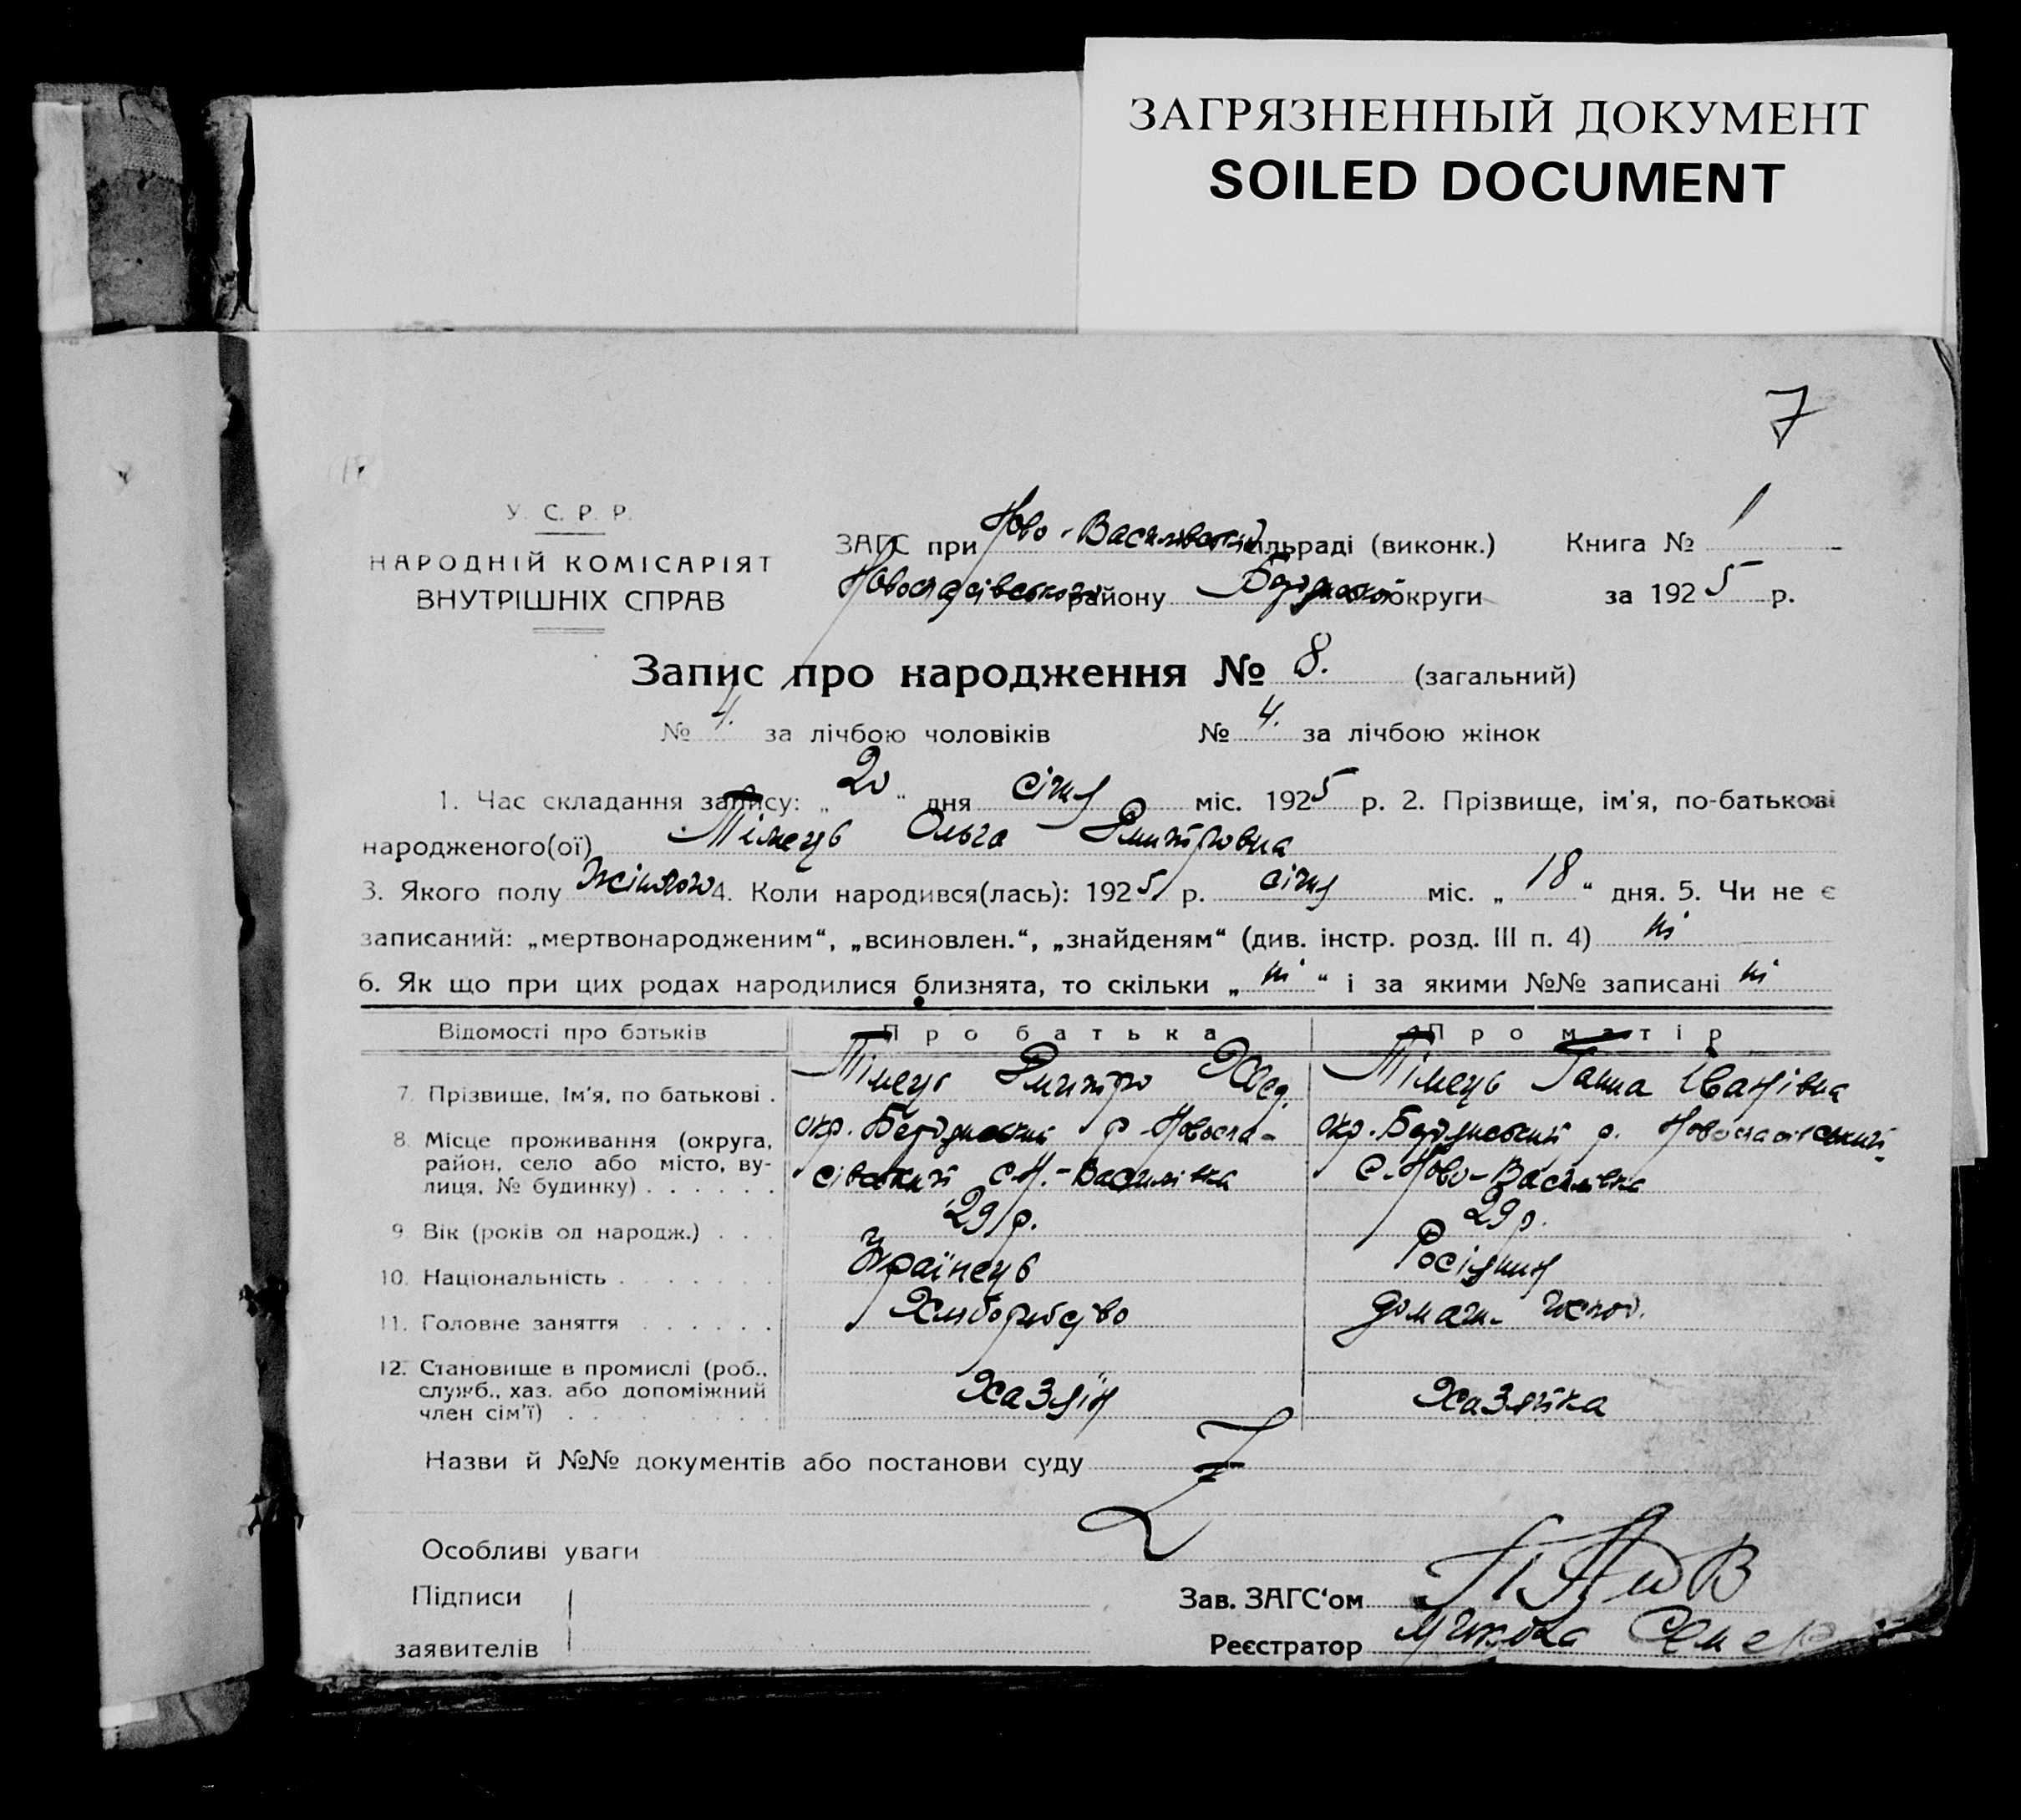 ЗАГРЯЗНЕННЫЙ ДОКУМЕНТ
SOILED DOCUMENT
7
У. С. Р. Р.
НАРОДНІЙ КОМІСАРІЯТ
ВНУТРІШНІХ СПРАВ
ЗАГС при Ново-Васил̈вский ільраді (виконк.)
Книга № 1
району Бердянської округи
за 1925 р.
Запис про народження № 8. (загальний)
№ 4. за лічбою чоловіків № 4. за лічбою жінок
1. Час складання запису: „20“ дня січня міс. 1925 р. 2. Прізвище, ім'я, по-батькові
народженого(ої) Тімець Ольга Дмитровна
3. Якого полу Жіночого 4. Коли народився(лась): 1925 р. січня міс. „18“ дня. 5. Чи не є
записаний: „мертвонародженим“, „всиновлен.“, „знайденям“ (див. інстр. розд. III п. 4) ні
6. Як що при цих родах народилися близнята, то скільки „ні“ і за якими №№ записані ні
Відомості про батьків Про батька Про матір
7. Прізвище, Ім'я, по батькові . Тімець Дмитро Хвед. Тімець Ганна Іванівна
8. Місце проживання (округа, район, село або місто, вулиця, № будинку) . . . . . .
окр. Бердянський р. Новоспа-
сівський с Н.-Василівка
окр. Бердянський р. Новоспасівський
с. Ново-Василівка
9. Вік (років од народж.) . . . 29 р. 29 р.
10. Національність . . . . . . . Українець Росіянин
11. Головне заняття . . . . . . Хліборобство домаш. господ.
12. Становище в промислі (роб.,
служб., хаз. або допоміжний
член сім'ї) . . . . . . . . . Хазяїн Хазяйка
Назви й №№ документів або постанови суду
Особливі уваги
Підписи
заявителів
Зав. ЗАГС'ом
Реєстратор